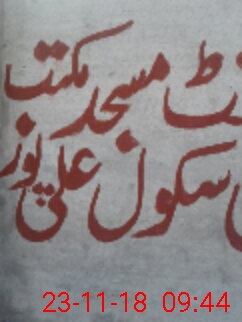 مسجد مکتب
سکول علی پور
23-11-18 09:44